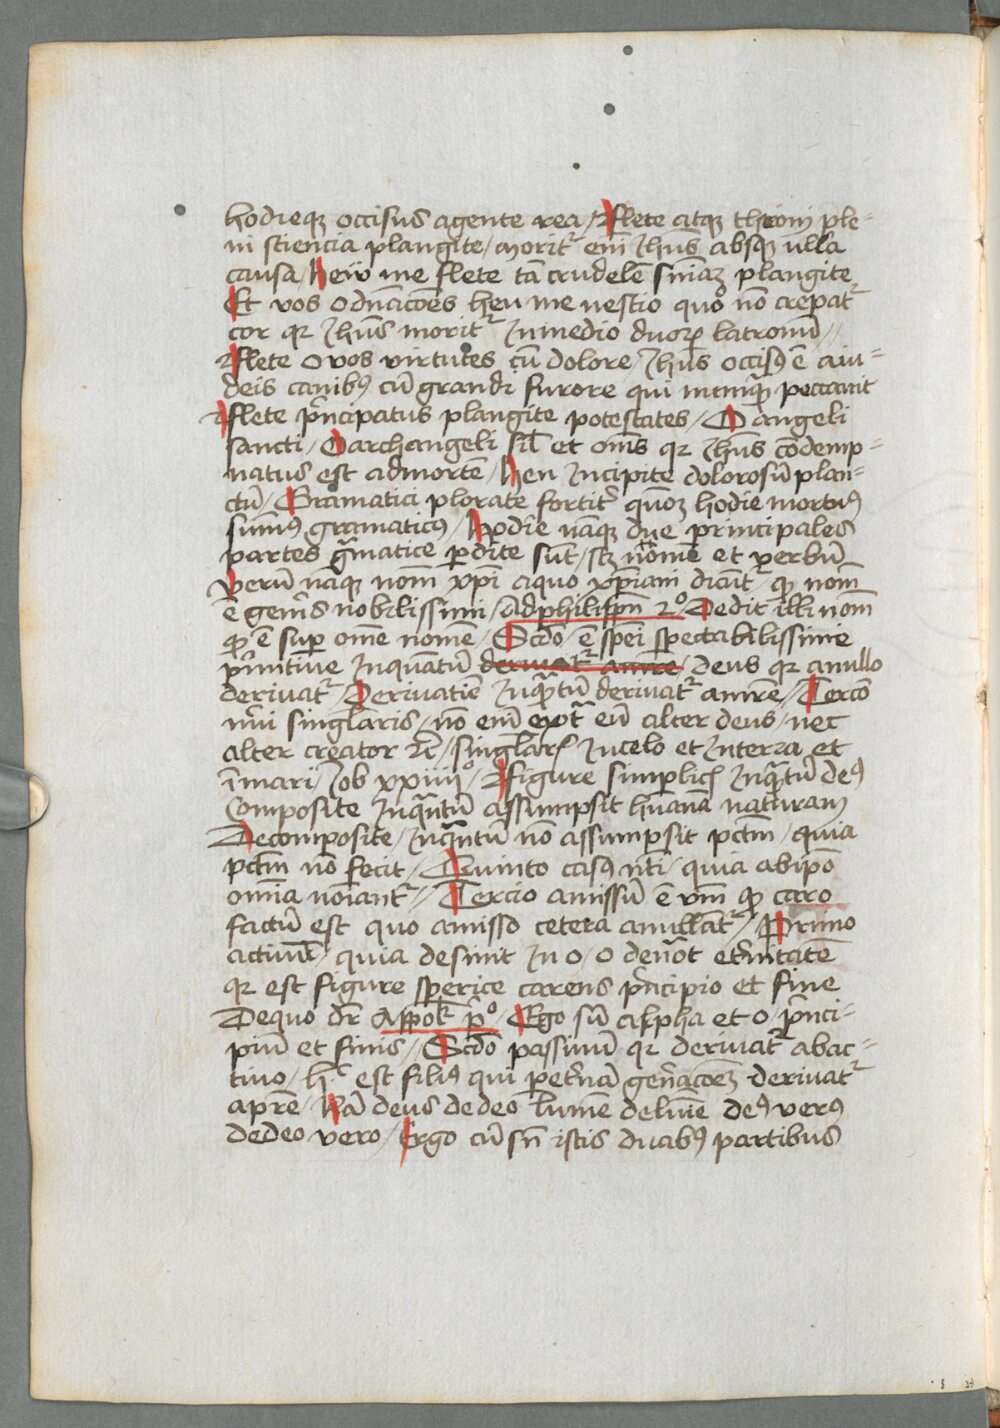 hodieqꝫ occisus agente rea / Flete atqꝫ throni ple-
ni sciencia plangite / morit᷑ em̄ Ihūs absqꝫ ulla
causa / heu me flete tā crudelē snīaꝫ plangite
Et vos o dn̄acōes heu me nescio quō nō crepat᷑
cor qꝛ Ihūs morit᷑ In medio duoꝝ latronū //
Flete o vos virtutes cū dolore / Ihūs occisꝰ ē a iu-
deis canibꝰ cū grandi furore qui nunqᷓ peccauit
Flete pͥncipatus plangite potestates / O angeli
sancti / O archangeli sil̄ et om̄s qꝛ Ihūs cōdemp-
natus est ad mortē / heu Incipite dolorosū plan-
ctū / Gramatici plorate fortit᷑ qūoꝫ hodie mortuꝰ
summꝰ gramaticus / hodie nāqꝫ due principales
partes gᷓmatice ꝑdite sūt / scꝫ nōmē et verbū
verū nāqꝫ nom̄ xp̄i a quo xp̄iani dicūt᷑ / qꝫ nom̄
ē genīs nobilissimi / Ad philipp̄n 2º / Dedit illi nom̄
qꝫ ē suꝑ om̄e nomē / Scdō ē sp̄ei spectabilissime
pͥmitiue Inquantū deriuat᷑ a nr̄e / deus qꝛ a nullo
deriuat᷑ / Deriuatiē Inqᷓtū deriuat᷑ a nr̄e // Tercō
nūi singlaris / nō em̄ exᷓt eū alter deus / nec
alter creator ⁊c / singlar̄ In celo et In terra et
ī mari / Iob xxiiiiº / Figure simplicꝭ Inqᷓtū deꝰ
Composite Inqᷓntū assumpsit hūanā naturam
Decomposite / Inqᷓntū nō assumpsit pctm̄ / quia
pctm̄ nō fecit / Quinto casꝰ nti / quia ab ipō
omīa noīant᷑ // Tercio amissū ē vm̄ qꝫ caro
factū est quo amisso cetera anullāt᷑ / Primo
actiuū / quia desinit In o / o denōt et͛nitatē
qꝛ est figure sperice carens pͥncipio et fine
De quo dr̄ Appok̄ pº / Ego sū alpha et o / pͥnci-
piū et finis // Scdō passiuū qꝛ deriuat᷑ ab ac-
tiuo / hͨ est filiꝰ qui ꝑ et͛nā gen̄acōeꝫ deriuat᷑
a pr̄e / Nā deus de deo lumē de lūie deꝰ verꝰ
de deo vero / Ergo cū sn̄ istis duabꝰ partibus